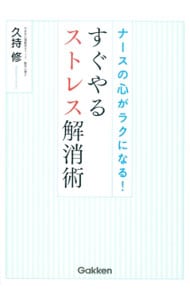 ナースの心がラクになる！
すぐやる
ストレス解消術
久持 修
Gakken